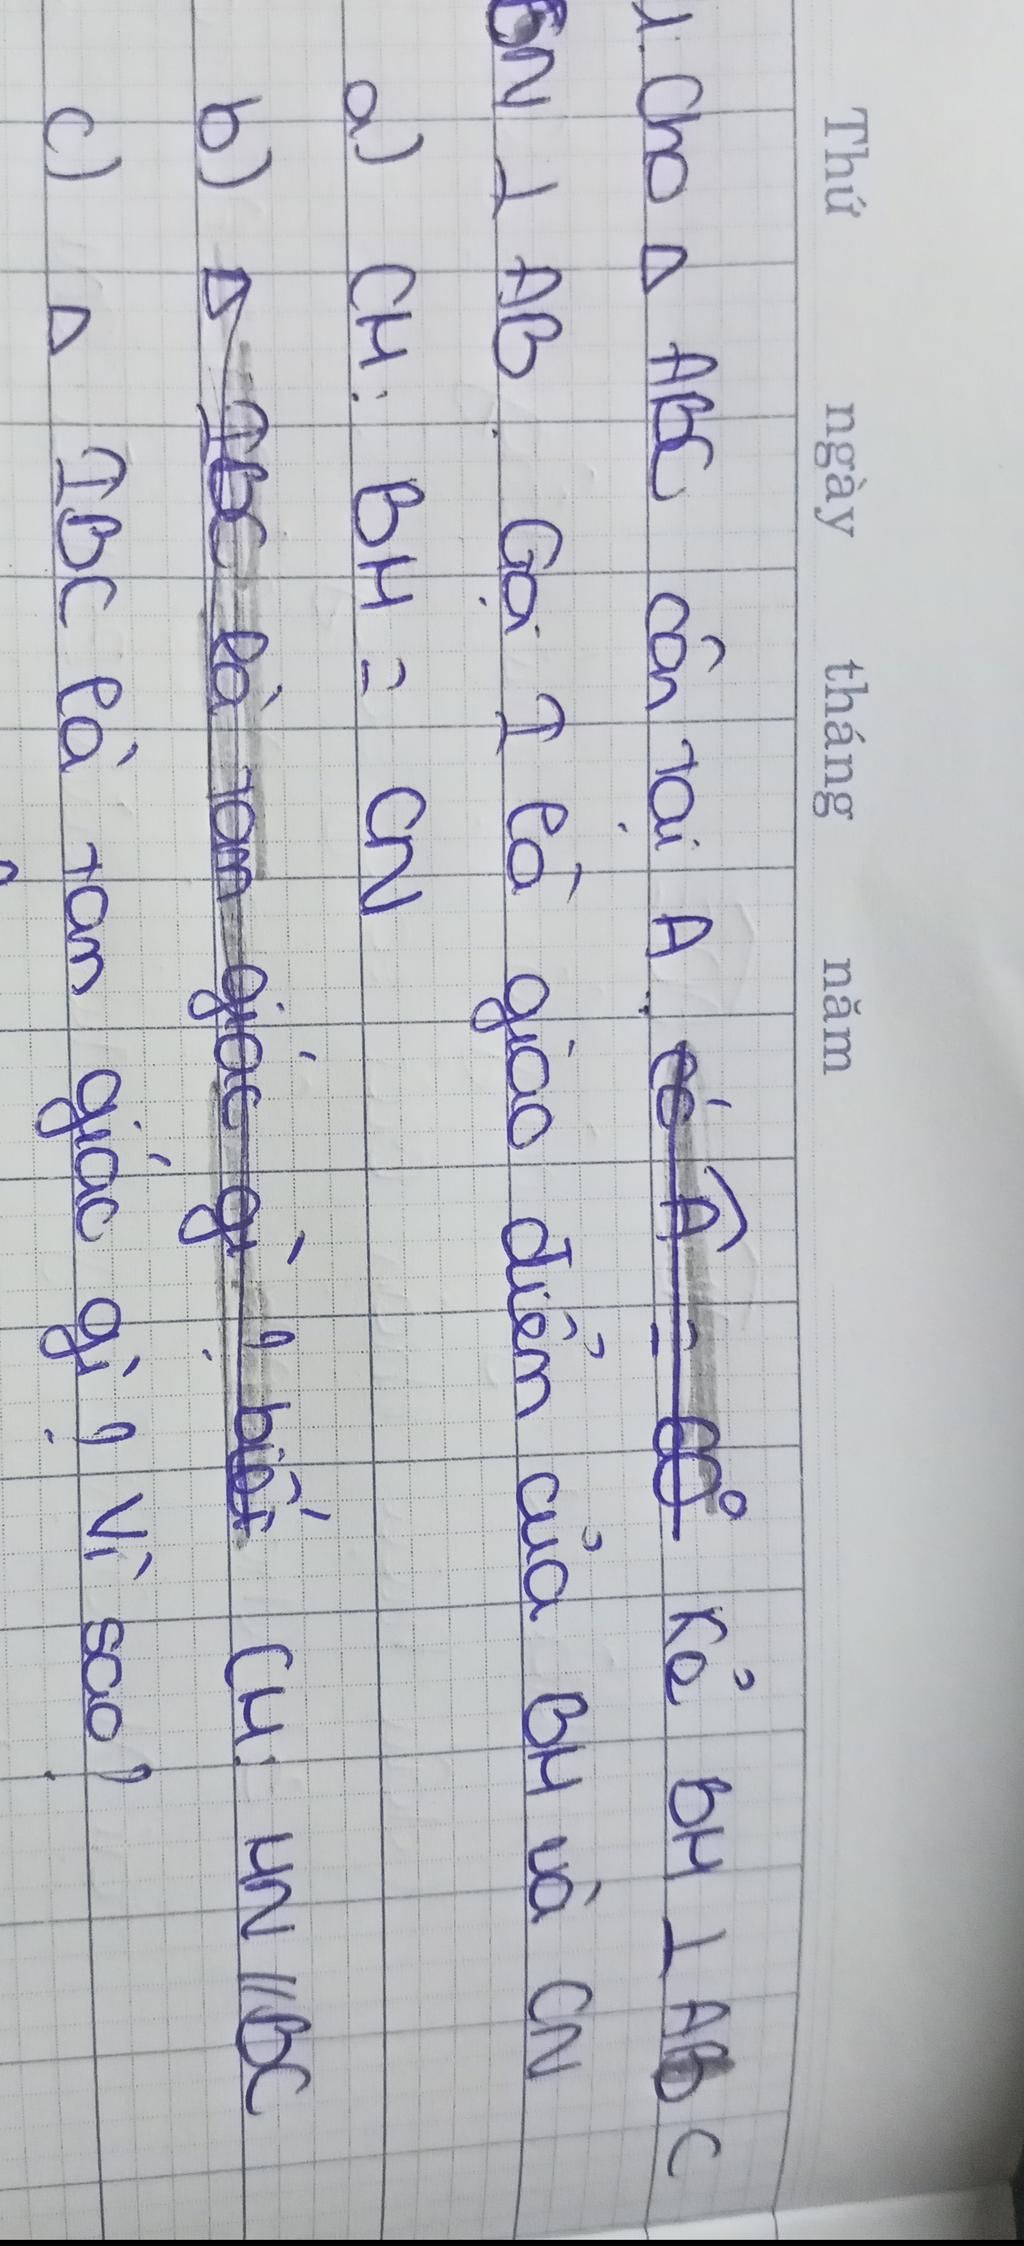 Thứ ngày tháng năm
1. Cho Δ ABC cân tại A. có Â = Kẻ BH ⊥ AC
CN ⊥ AB. Gọi I là giao điểm của BH và CN
a) CM: BH = CN
b) Δ IBC là tam giác gì? biết CM: HN // BC
c) Δ IBC là tam giác gì? Vì sao?